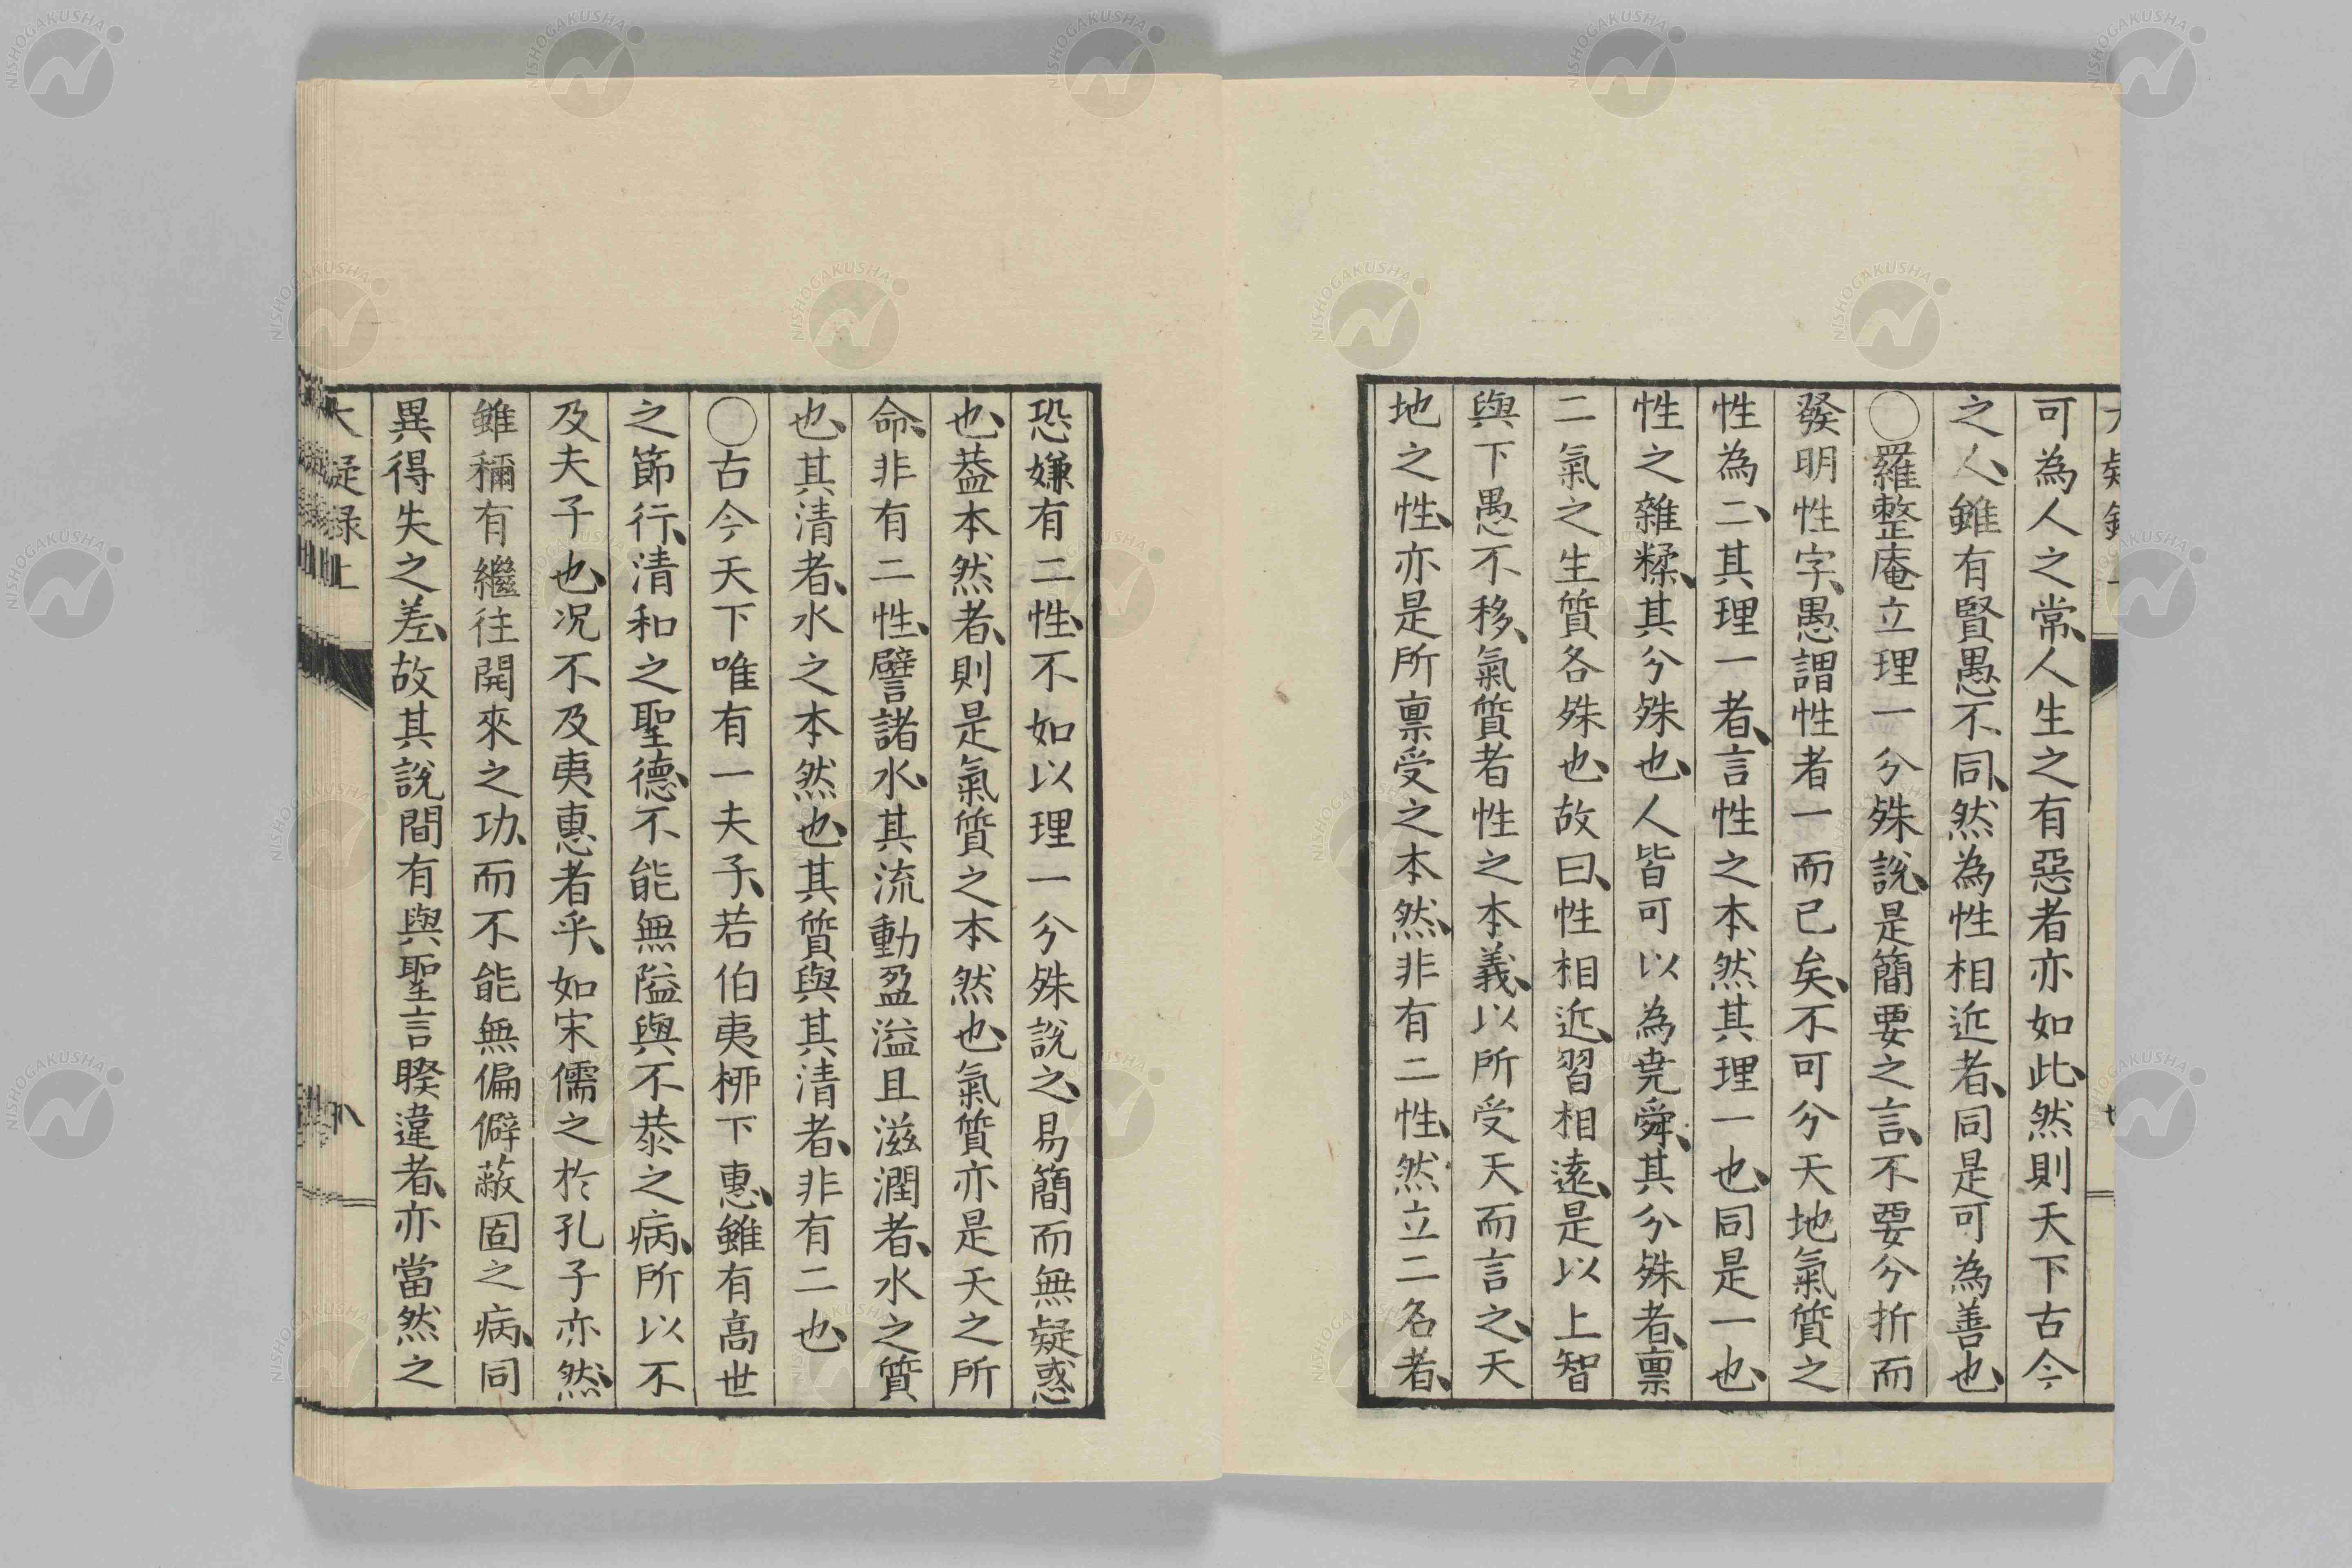 可為人之常、人生之有惡者亦如此、然則天下古今
之人、雖有賢愚不同、然為性相近者、同是可為善也、
○羅整庵立理一分殊說、是簡要之言、不要分折而
發明性字、愚謂性者一而已矣、不可分天地氣質之
性為二、其理一者、言性之本然其理一也、同是一也、
性之雜糅、其分殊也、人皆可以為堯舜、其分殊者、禀
二氣之生質各殊也、故曰、性相近、習相遠、是以上智
與下愚不移、氣質者性之本義、以所受天而言之、天
地之性、亦是所禀受之本然、非有二性、然立二名者、
恐嫌有二性、不如以理一分殊說之、易簡而無疑惑
也、葢本然者、則是氣質之本然也、氣質亦是天之所
命、非有二性、譬諸水、其流動盈溢且滋潤者、水之質
也、其清者、水之本然也、其質與其清者、非有二也、
○古今天下唯有一夫子、若伯夷栁下惠、雖有高世
之節行、清和之聖德、不能無隘與不恭之病、所以不
及夫子也、况不及夷惠者乎、如宋儒之於孔子亦然、
雖稱有繼往開來之功、而不能無偏僻蔽固之病、同
異得失之差、故其說間有與聖言睽違者、亦當然之
大疑録上
八
NISHOGAKUSHA